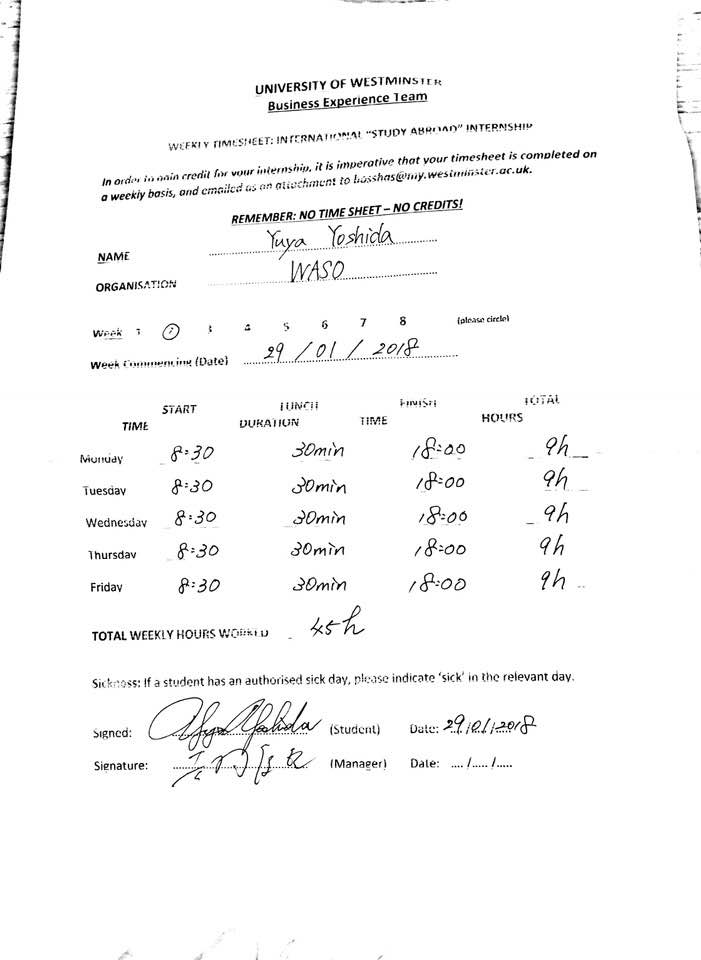 UNIVERSITY OF WESTMINSTER
Business Experience Team
WEEKLY TIMESHEET: INTERNATIONAL "STUDY ABROAD" INTERNSHIP
In order to gain credit for your internship, it is imperative that your timesheet is completed on
a weekly basis, and emailed as an attachment to hosshas@my.westminster.ac.uk.
REMEMBER: NO TIME SHEET – NO CREDITS!
NAME Yuya Yoshida
ORGANISATION WASO
Week 1 2 3 4 5 6 7 8 (please circle)
Week Commencing (Date) 29 / 01 / 2018
START LUNCH FINISH TOTAL
TIME DURATION TIME HOURS
Monday 8:30 30min 18:00 9h
Tuesday 8:30 30min 18:00 9h
Wednesday 8:30 30min 18:00 9h
Thursday 8:30 30min 18:00 9h
Friday 8:30 30min 18:00 9h
TOTAL WEEKLY HOURS WORKED 45h
Sickness: If a student has an authorised sick day, please indicate 'sick' in the relevant day.
Signed: Yuya Yoshida (Student) Date: 29/01/2018
Signature: (Manager) Date: .... /..... /.....